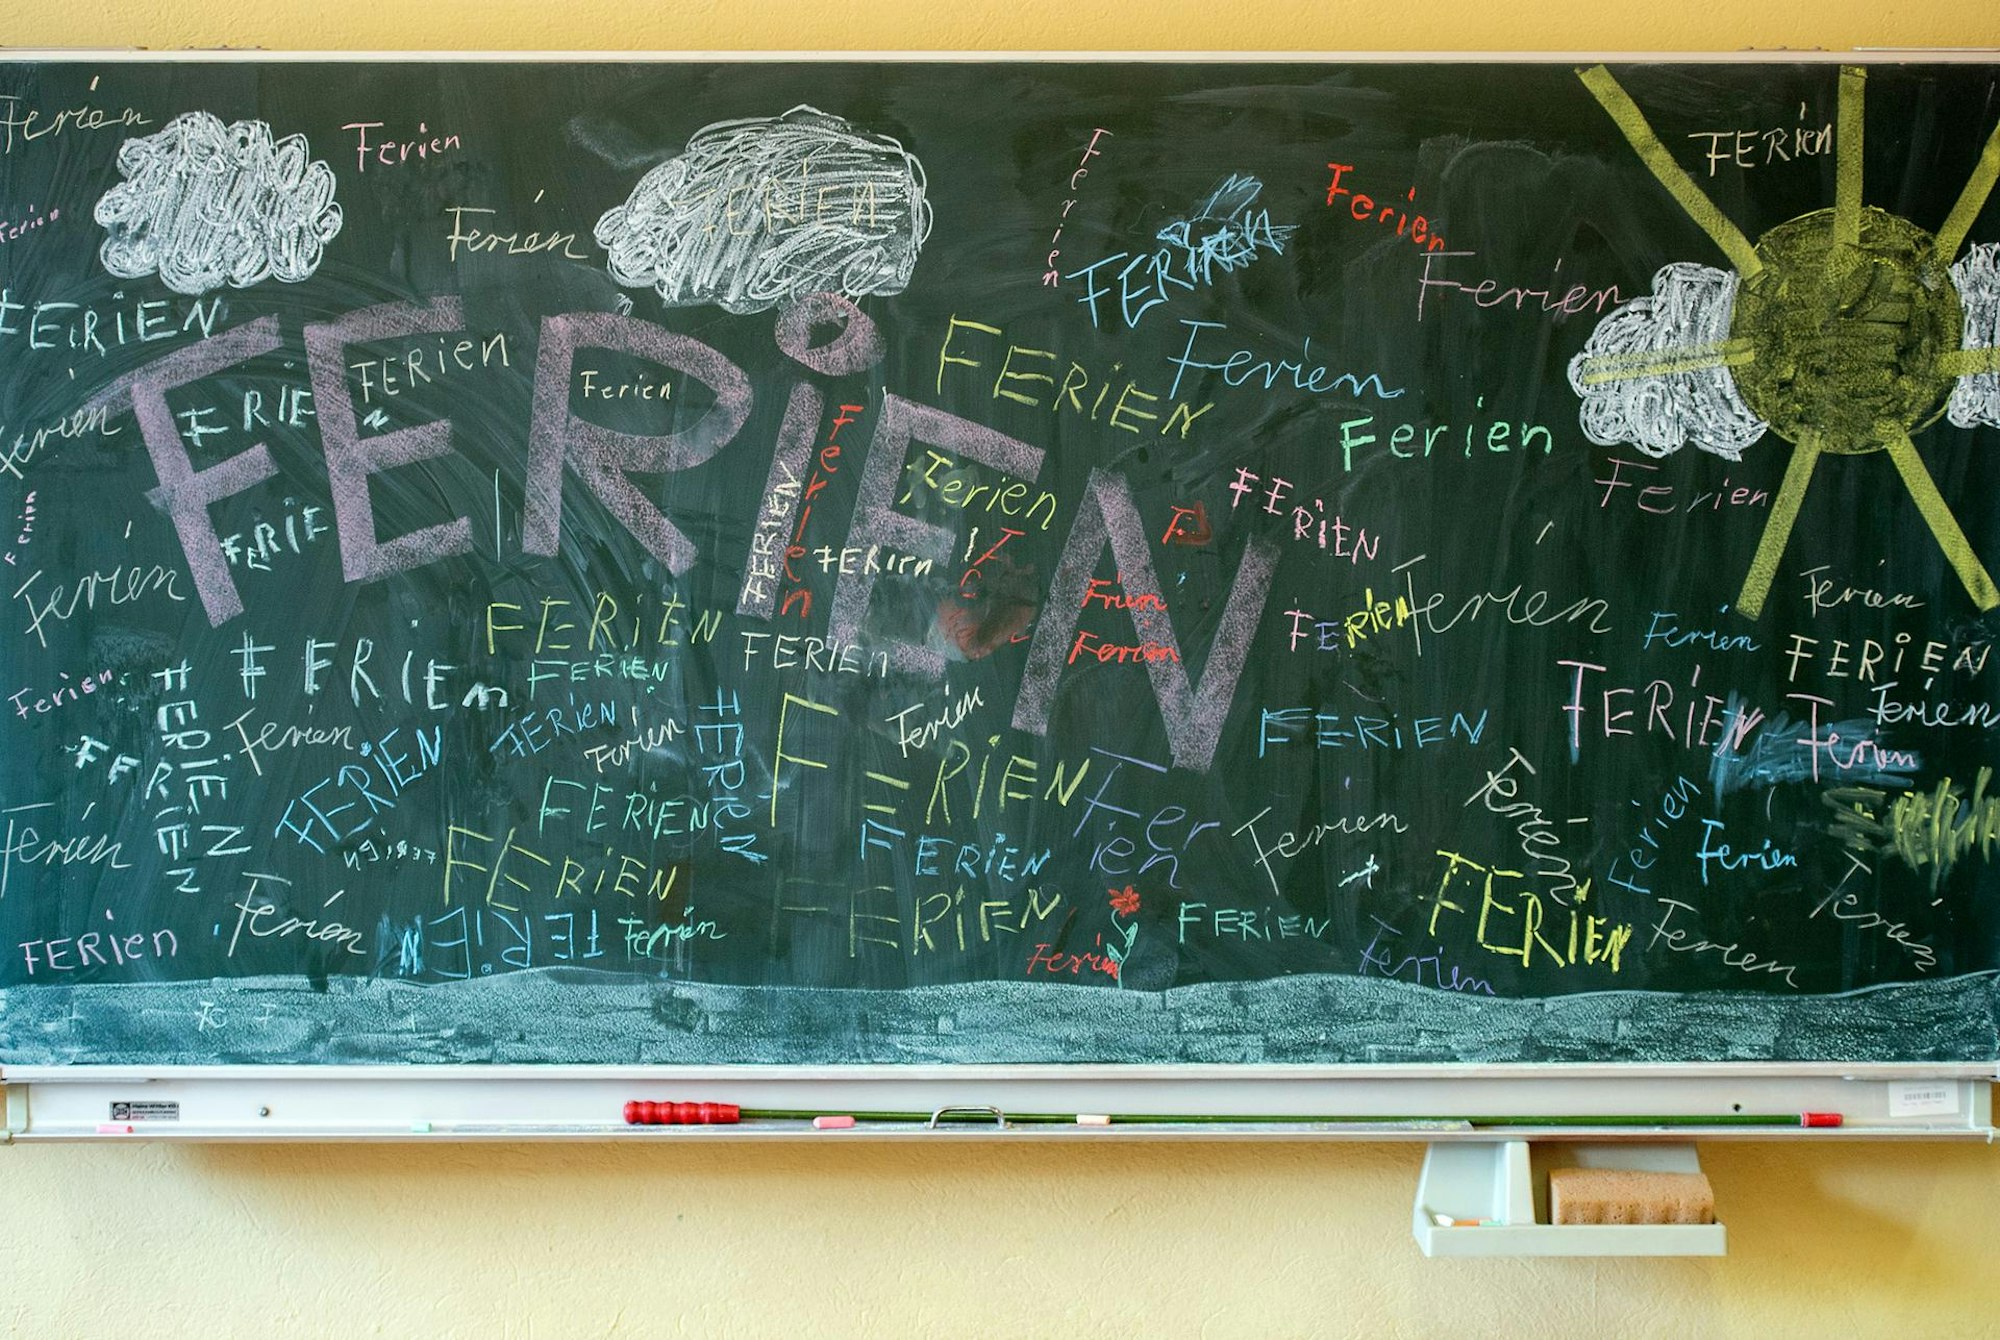 Ferien
Ferien
FERiEN
Ferien
Ferien
Ferien
Ferien
Ferien
FERiEN
FERIEN
FERIEN
Ferien
FERiEN
FERIEN
Ferien
FERiEN
FERiEN
Ferien
Ferien
Ferien
FERiEN
Ferien
Ferien
Ferien
FERIEN
Ferien
FERIEN
Ferien
Ferien
FERIE
FERIEN
FERien
Ferien
FERiEN
FERIEN
Ferien
FERien
Ferien
Ferien
Ferien
FERiEN
FERIEN
FERIEn
FERIEN
Ferien
Ferien
FERIEN
Ferien
FERIEN
Ferien
FERIEN
FERiEN
FERIEN
Ferien
FERiEN
Ferien
FERIEN
FERIEN
Ferien
FERIEN
Ferien
FERIEN
FERiEN
Fer
ien
Ferien
Ferien
Ferien
Ferien
FERiEN
FERiEN
FERIEN
FERiEN
Ferien
Ferien
FERien
Ferien
FERIEN
Ferien
FERiEN
Ferien
FERiEN
Ferien
Ferien